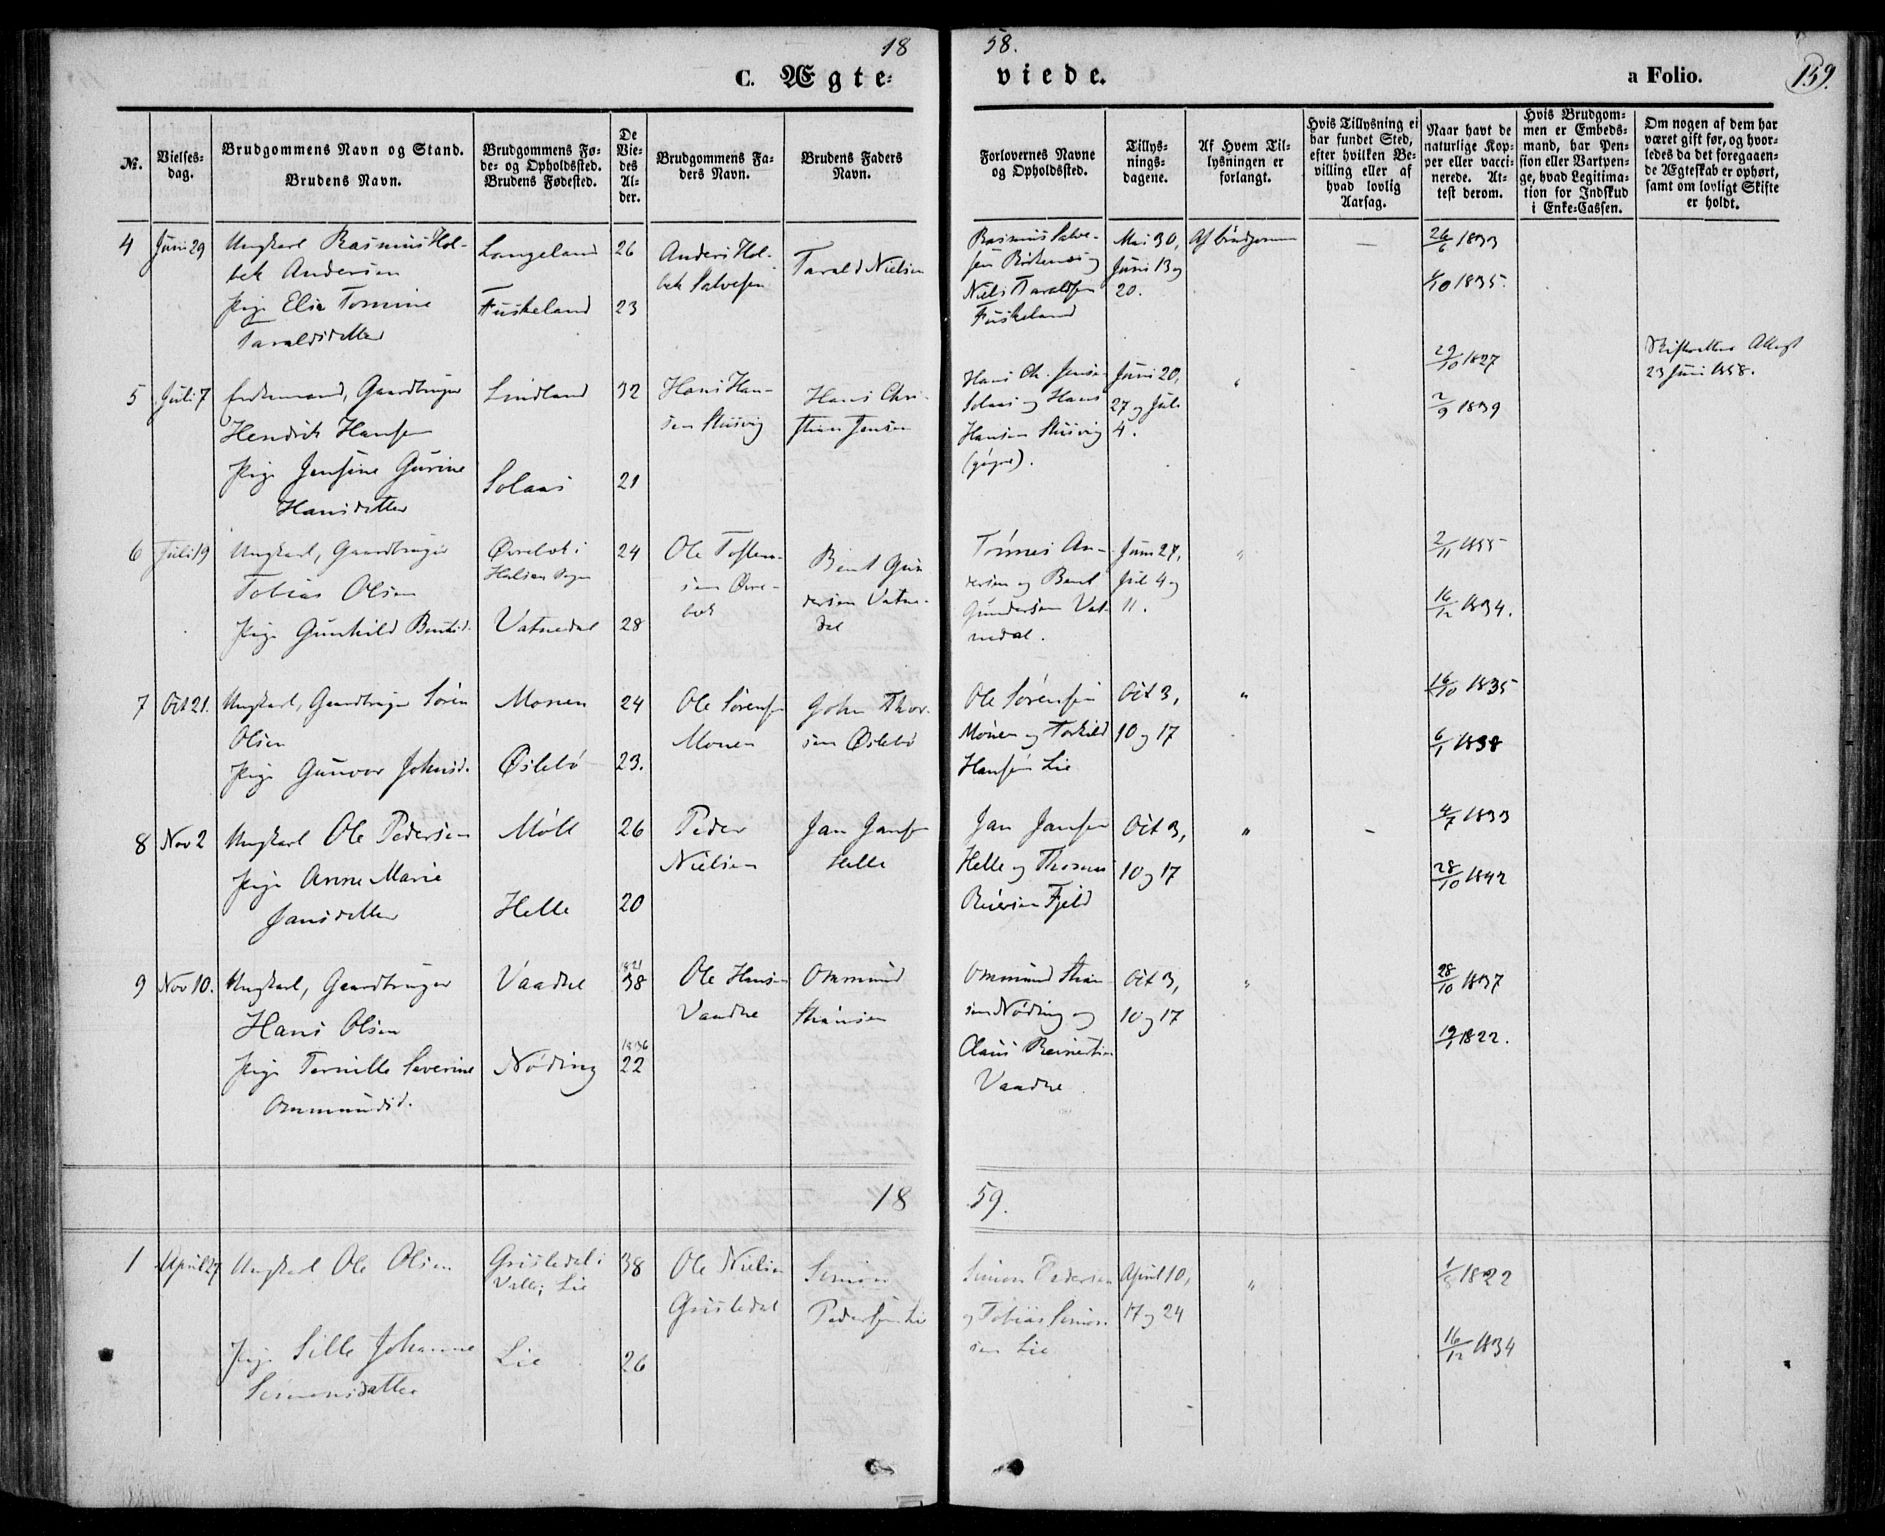 18 58.
C. Ægte- viede. a Folio. 159.
№.
Vielses-
dag.
Brudgommens Navn og Stand.
Brudens Navn.
Brudgommens Fø-
de- og Opholdssted.
Brudens Fødested.
De
Vie-
des
Al-
der.
Brudgommens Fa-
ders Navn.
Brudens Faders
Navn.
Forlovernes Navne
og Opholdssted.
Tillys-
nings-
dagene.
Af Hvem Til-
lysningen er
forlangt.
Hvis Tillysning ei
har fundet Sted,
efter hvilken Be-
villing eller af
hvad lovlig
Aarsag.
Naar havt de
naturlige Kop-
per eller vacci-
nerede. At-
test derom.
Hvis Brudgom-
men er Embeds-
mand, har Pen-
sion eller Vartpen-
ge, hvad Legitima-
tion for Indskud
i Enke-Cassen.
Om nogen af dem har
været gift før, og hvor-
ledes da det foregaaen-
de Ægteskab er ophørt,
samt om lovligt Skifte
er holdt.
4
Juni 29
Ungkarl Rasmus Hol-
bek Andersen
Pige Elise Tomine
Taraldsdatter
Langeland
Fuskeland
26
23
Anders Hol-
bek Salvesen
Tarald Nielsen
Rasmus Salve-
sen Birkenes og
Niels Taraldsen
Fuskeland
Mai 30,
Juni 13 og
20.
Af brudgommen
—
26/6 1833
/10 1835.
5
Juli 7
Enkemand, Gaardbruger
Hendrik Hansen
Pige Jensine Gurine
Hansdatter
Lindland
Solaas
32
21
Hans Han-
sen Stusvig
Hans Chri-
stian Jensen
Hans Ch. Jensen
Solaas og Hans
Hansen Stusvig
Juni 20,
27 og Juli
4.
"
29/10 1827
2/9 1839
Skifterettens Attest
23 Juni 1858.
6
Juli 19
Ungkarl, Gaardbruger
Tobias Olsen
Pige Gunhild Bentsd.
Øvrebøk i
Halsaa Sogn
Vatnedal
24
28
Ole Tostens-
sen Øvre-
bøk
Bent Gun
dersen Vatne-
dal
Tønnes An-
dersen og Bent
Gundersen Vat-
nedal.
Juni 27,
Juli 4 og
11.
"
2/11 1855
16/12 1834.
7
Oct 21.
Ungkarl, Gaardbruger Sören
Olsen
Pige Gunvor Johnsd.
Monen
Øslebö
24
23.
Ole Sörensen
Monen
John Thor-
sen Øslebö
Ole Sörensen
Monen og Torkild
Hansen Lie
Oct 3,
10 og 17
"
16/10 1835
6/1 1838
8
Nov 2
Ungkarl Ole Pedersen
Pige Anne Marie
Jansdatter
Möll
Helle
26
20
Peder
Nielsen
Jan Jansen
Helle
Jan Jansen
Helle og Thomas
Reiersen Fjeld
Oct 3,
10 og 17
"
—
4/7 1833
28/10 1842
9
Nov 10.
Ungkarl, Gaardbruger
Hans Olsen
Pige Pernille Severine
Ommundsd.
Vaadne
Nöding
1821
38
1836
22
Ole Hansen
Vaadne
Ommund
Stiansen
Ommund Stian
sen Nöding og
Claus Reinertsen
Vaadne
Oct 3,
10 og 17
"
28/10 1837
19/1 1822.
18 59.
1
April 27
Ungkarl Ole Olsen
Pige Sille Johanne
Simonsdatter
Grisledal i
Valle; Lie
Lie
38
26
Ole Nielsen
Grisledal
Simon
Pedersen Lie
Simon Pedersen
og Tobias Simon-
sen Lie
April 10,
17 og 24
"
1/8 1822
16/12 1834